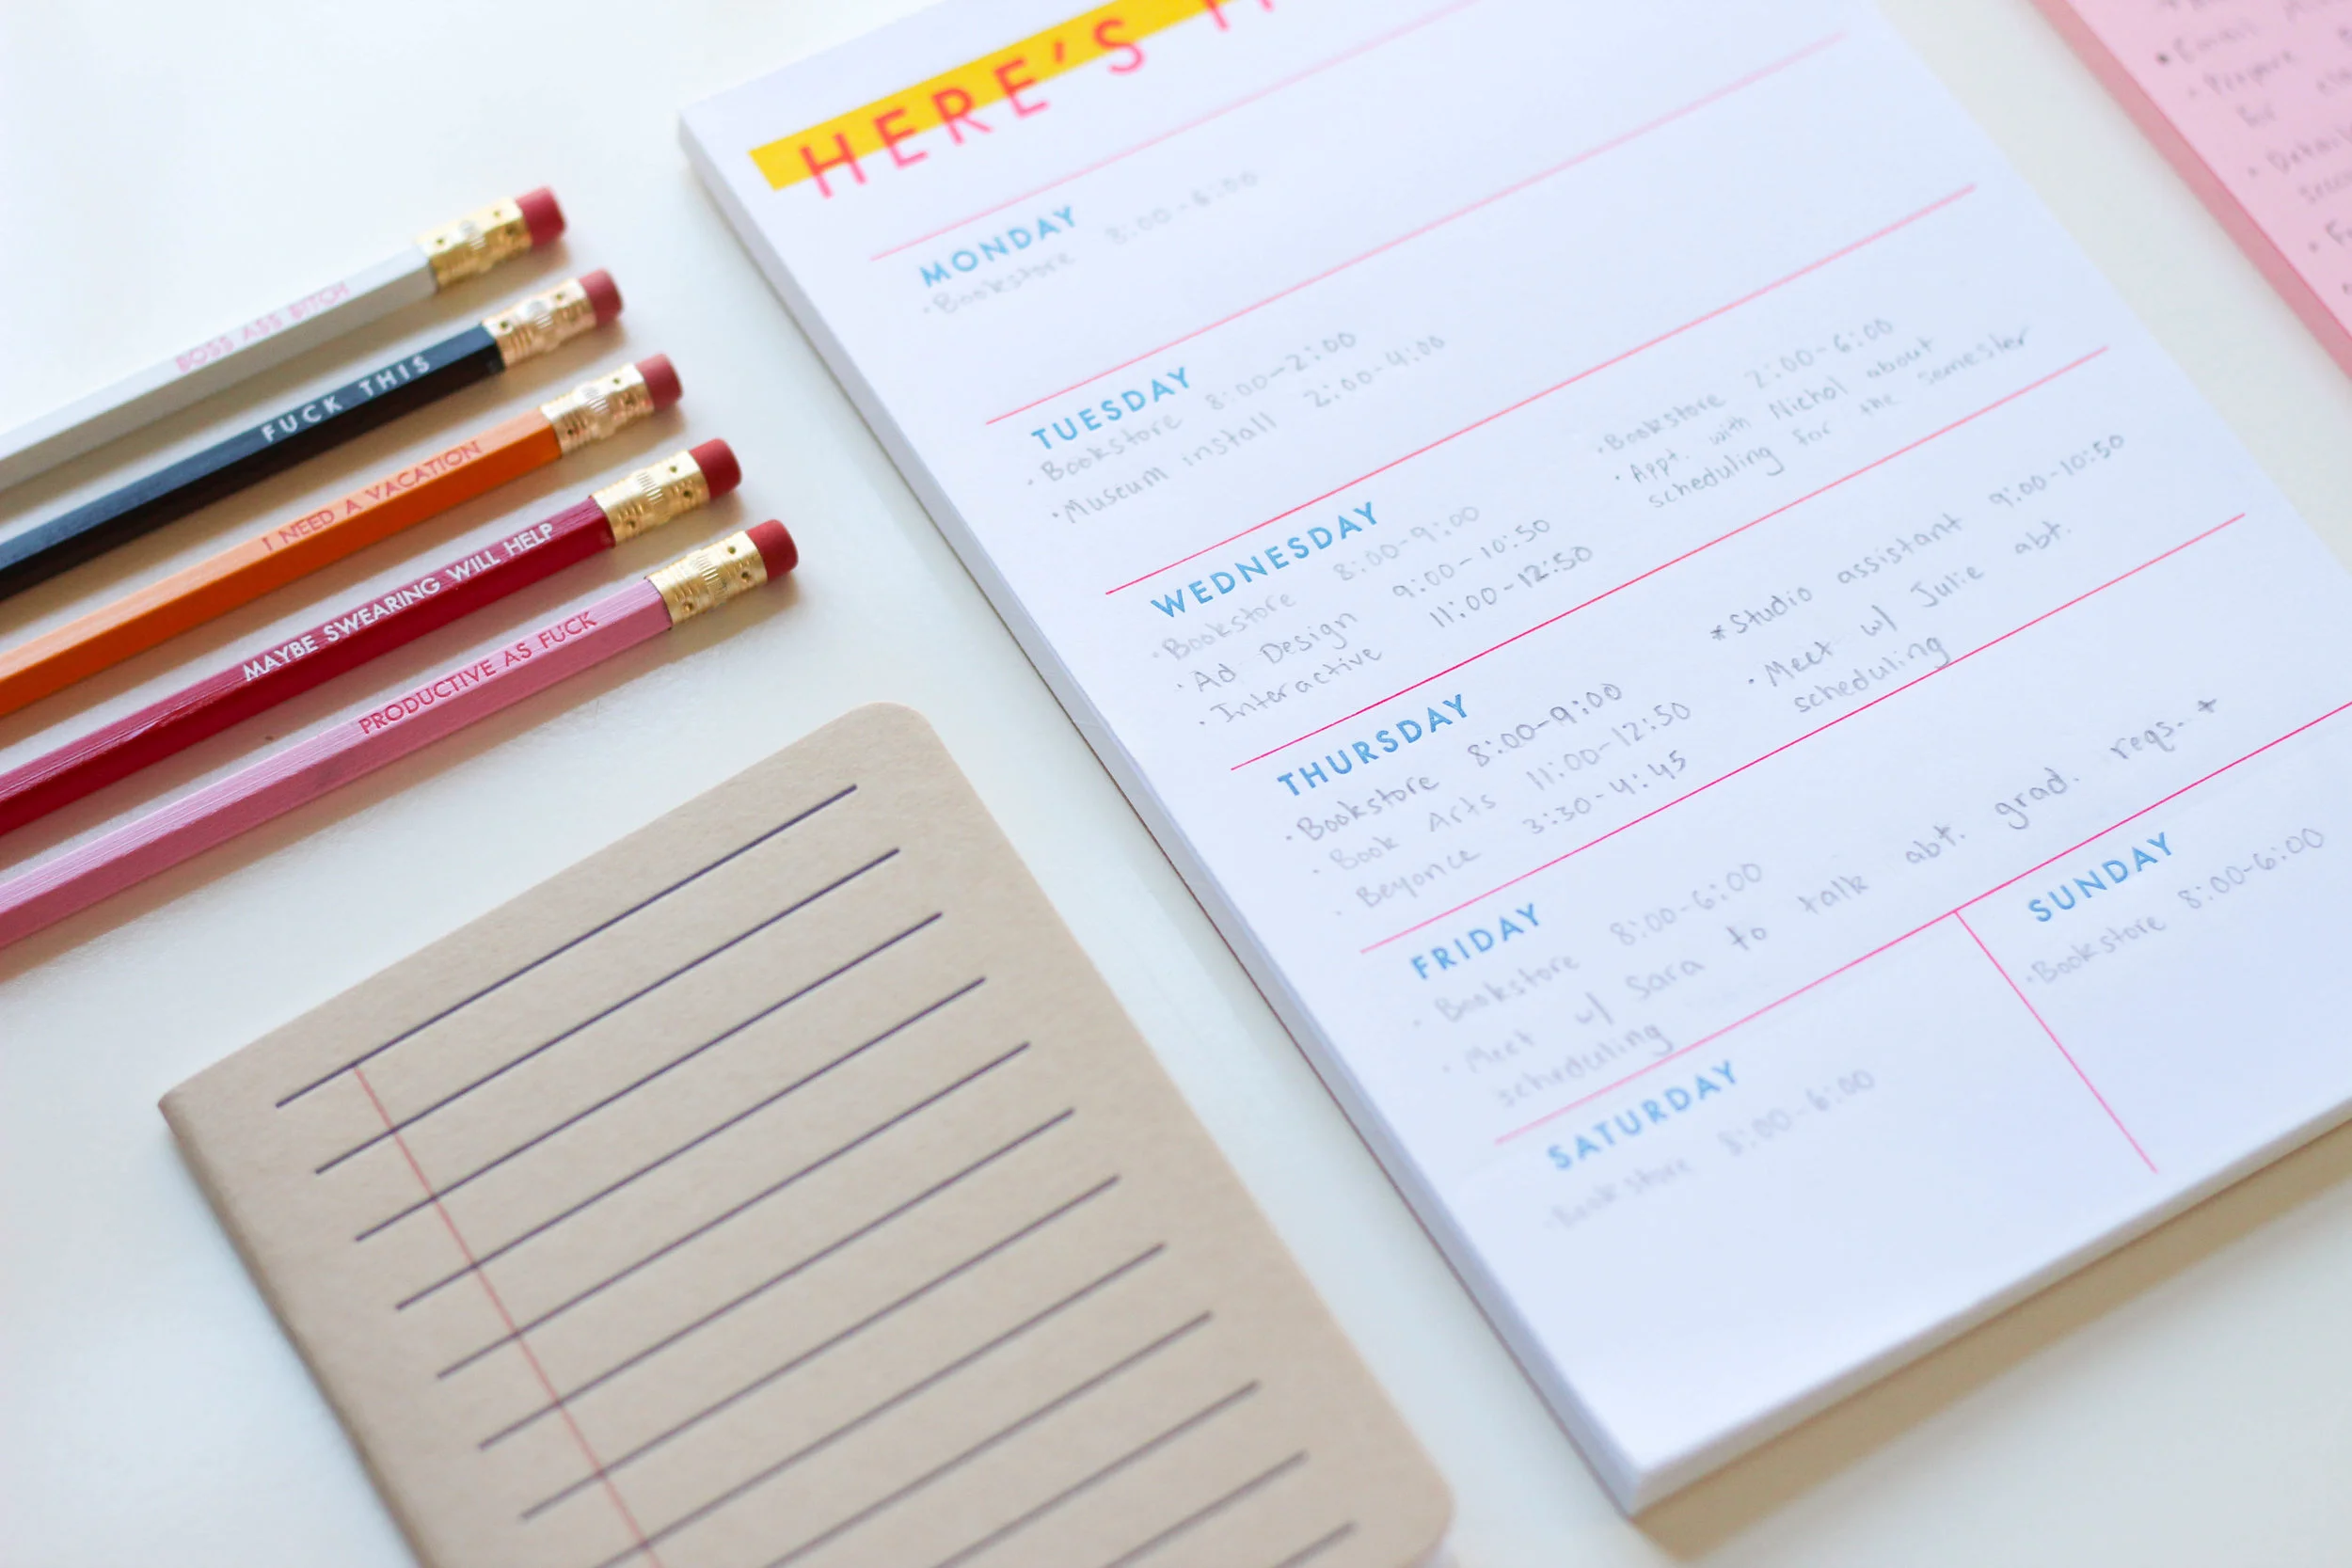 BOSS ASS BITCH
FUCK THIS
I NEED A VACATION
MAYBE SWEARING WILL HELP
PRODUCTIVE AS FUCK
HERE'S
MONDAY
·Bookstore 8:00-6:00
TUESDAY
·Bookstore 8:00-2:00
·Museum install 2:00-4:00
WEDNESDAY
·Bookstore 8:00-9:00
·Ad Design 9:00-10:50
·Interactive 11:00-12:50
·Bookstore 2:00-6:00
·Appt. with Nichol about
scheduling for the semester
THURSDAY
·Bookstore 8:00-9:00
·Book Arts 11:00-12:50
·Beyonce 3:30-4:45
*Studio assistant 9:00-10:50
·Meet w/ Julie abt.
scheduling
FRIDAY
·Bookstore 8:00-6:00
·Meet w/ Sara to talk abt. grad. reqs. +
scheduling
SATURDAY
·Bookstore 8:00-6:00
SUNDAY
·Bookstore 8:00-6:00
·Email
·Prepare
for